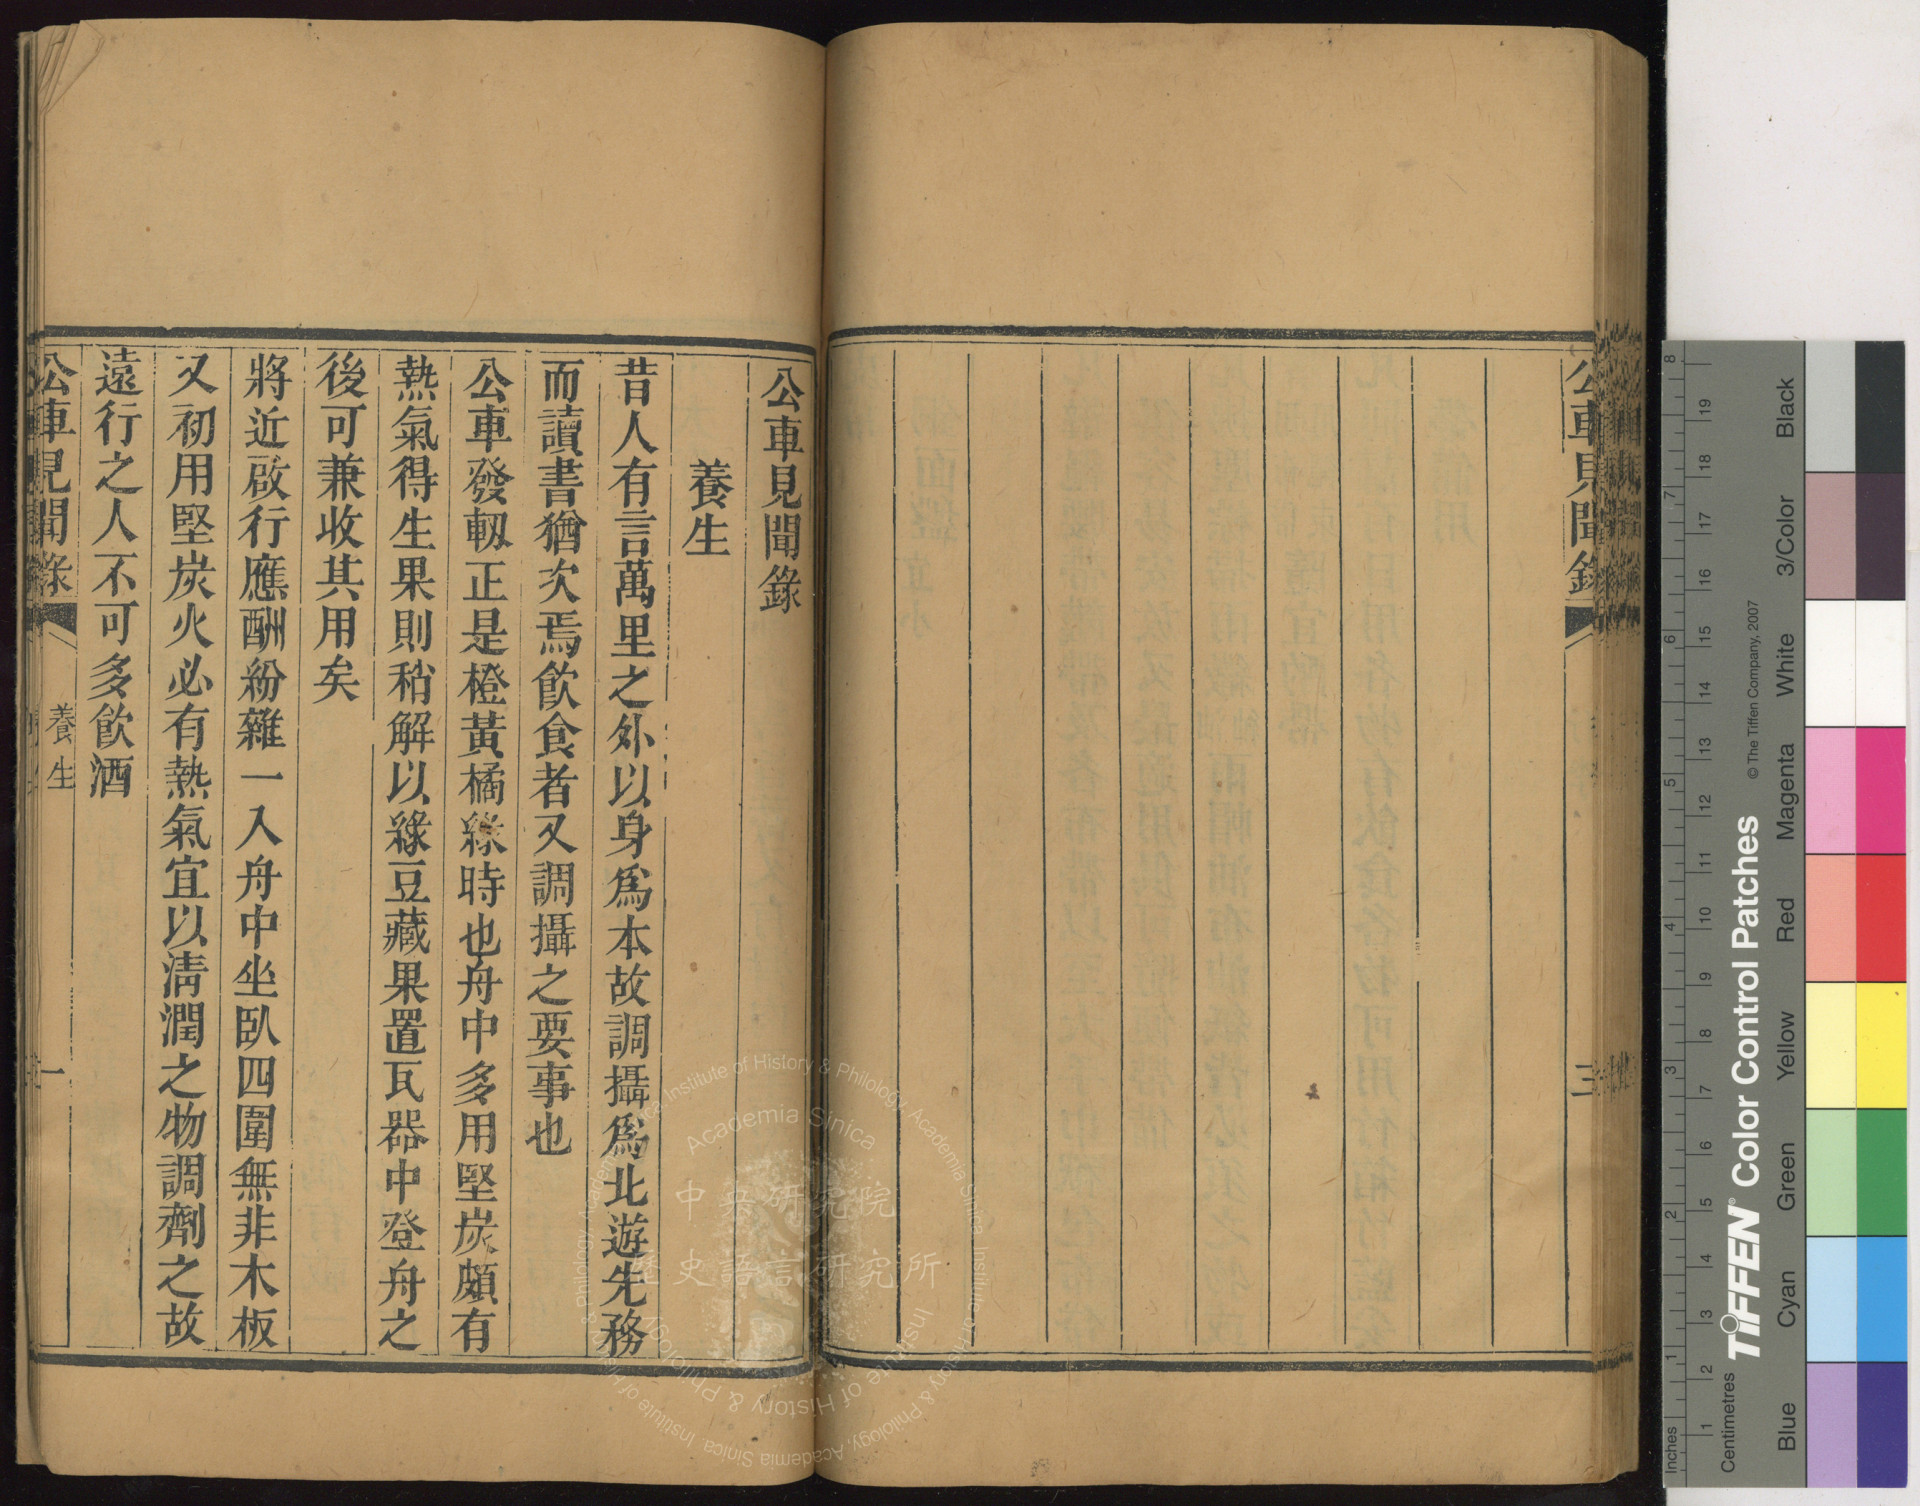 公車見聞錄
三
公車見聞錄
養生
昔人有言萬里之外以身爲本故調攝爲北遊先務
而讀書猶次焉飮食者又調攝之要事也
公車發軔正是橙黃橘綠時也舟中多用堅炭頗有
熱氣得生果則稍解以綠豆藏果置瓦器中登舟之
後可兼收其用矣
將近啟行應酬紛雜一入舟中坐臥四圍無非木板
又初用堅炭火必有熱氣宜以淸潤之物調劑之故
遠行之人不可多飮酒
公車見聞錄
養生
一
中央研究院
歷史語言研究所
Academia Sinica
Institute of History & Philology, Academia Sinica
Centimetres
Inches
TIFFEN® Color Control Patches
© The Tiffen Company, 2007
Blue
Cyan
Green
Yellow
Red
Magenta
White
3/Color
Black
1 2 3 4 5 6 7 8 9 10 11 12 13 14 15 16 17 18 19
1 2 3 4 5 6 7 8